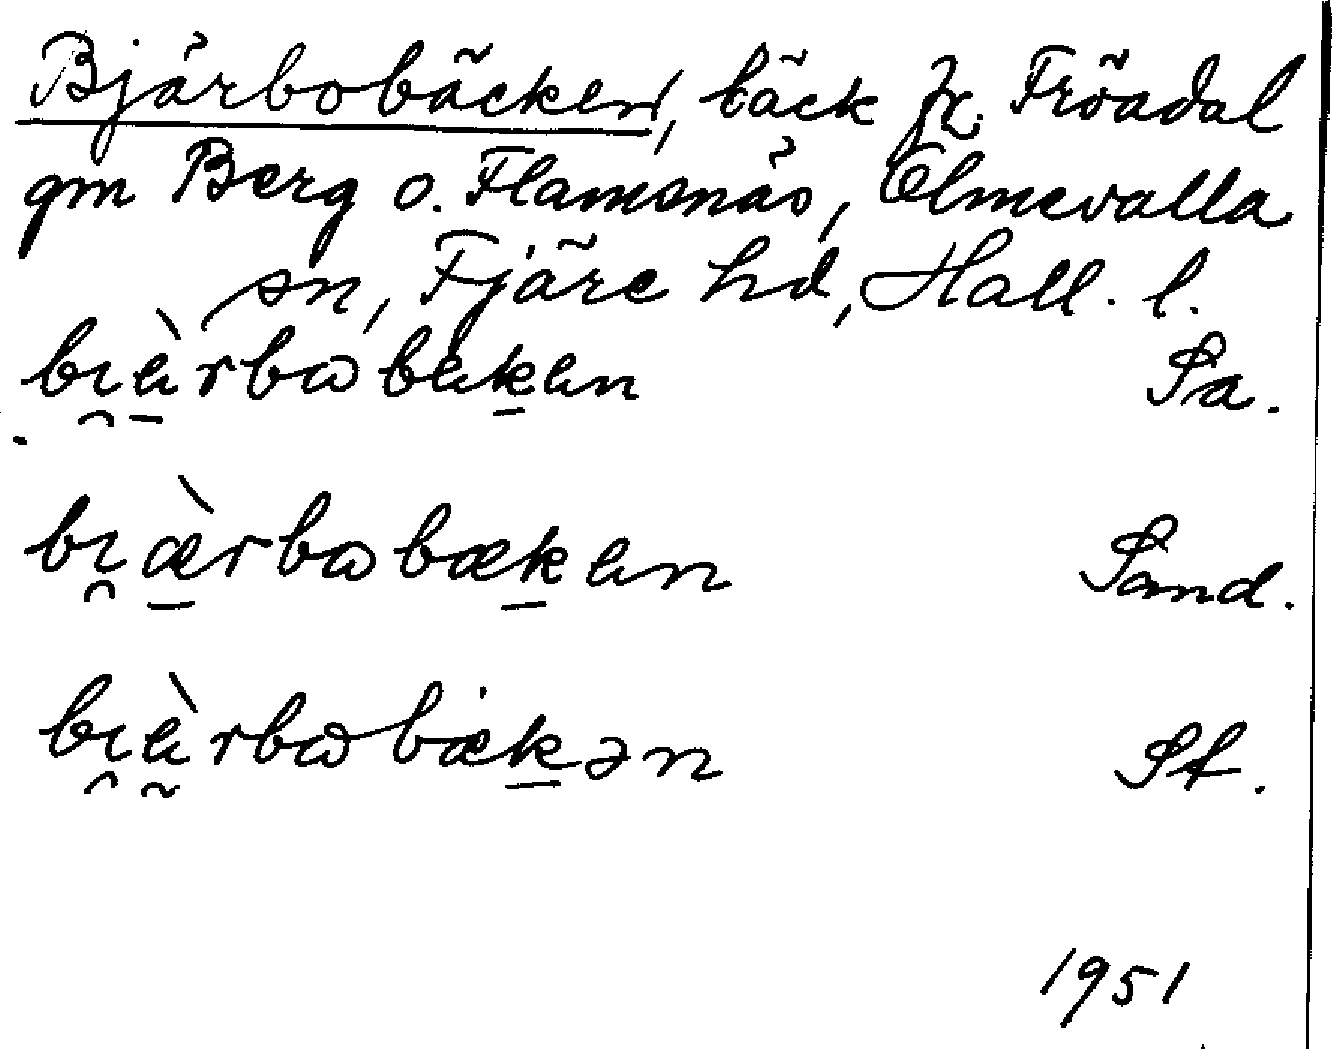 Bjärbobäcken, bäck fr. Fröadal
gm Berg o. Flamsnäs, Ölmevalla
sn, Fjäre hd, Hall. l.
bı̯ä̱̀rbωbäḵän Sa.
bı̯æ̱̀rbωbæḵän Sand.
bı̯ä̰̀rbωbæḵən St.
1951